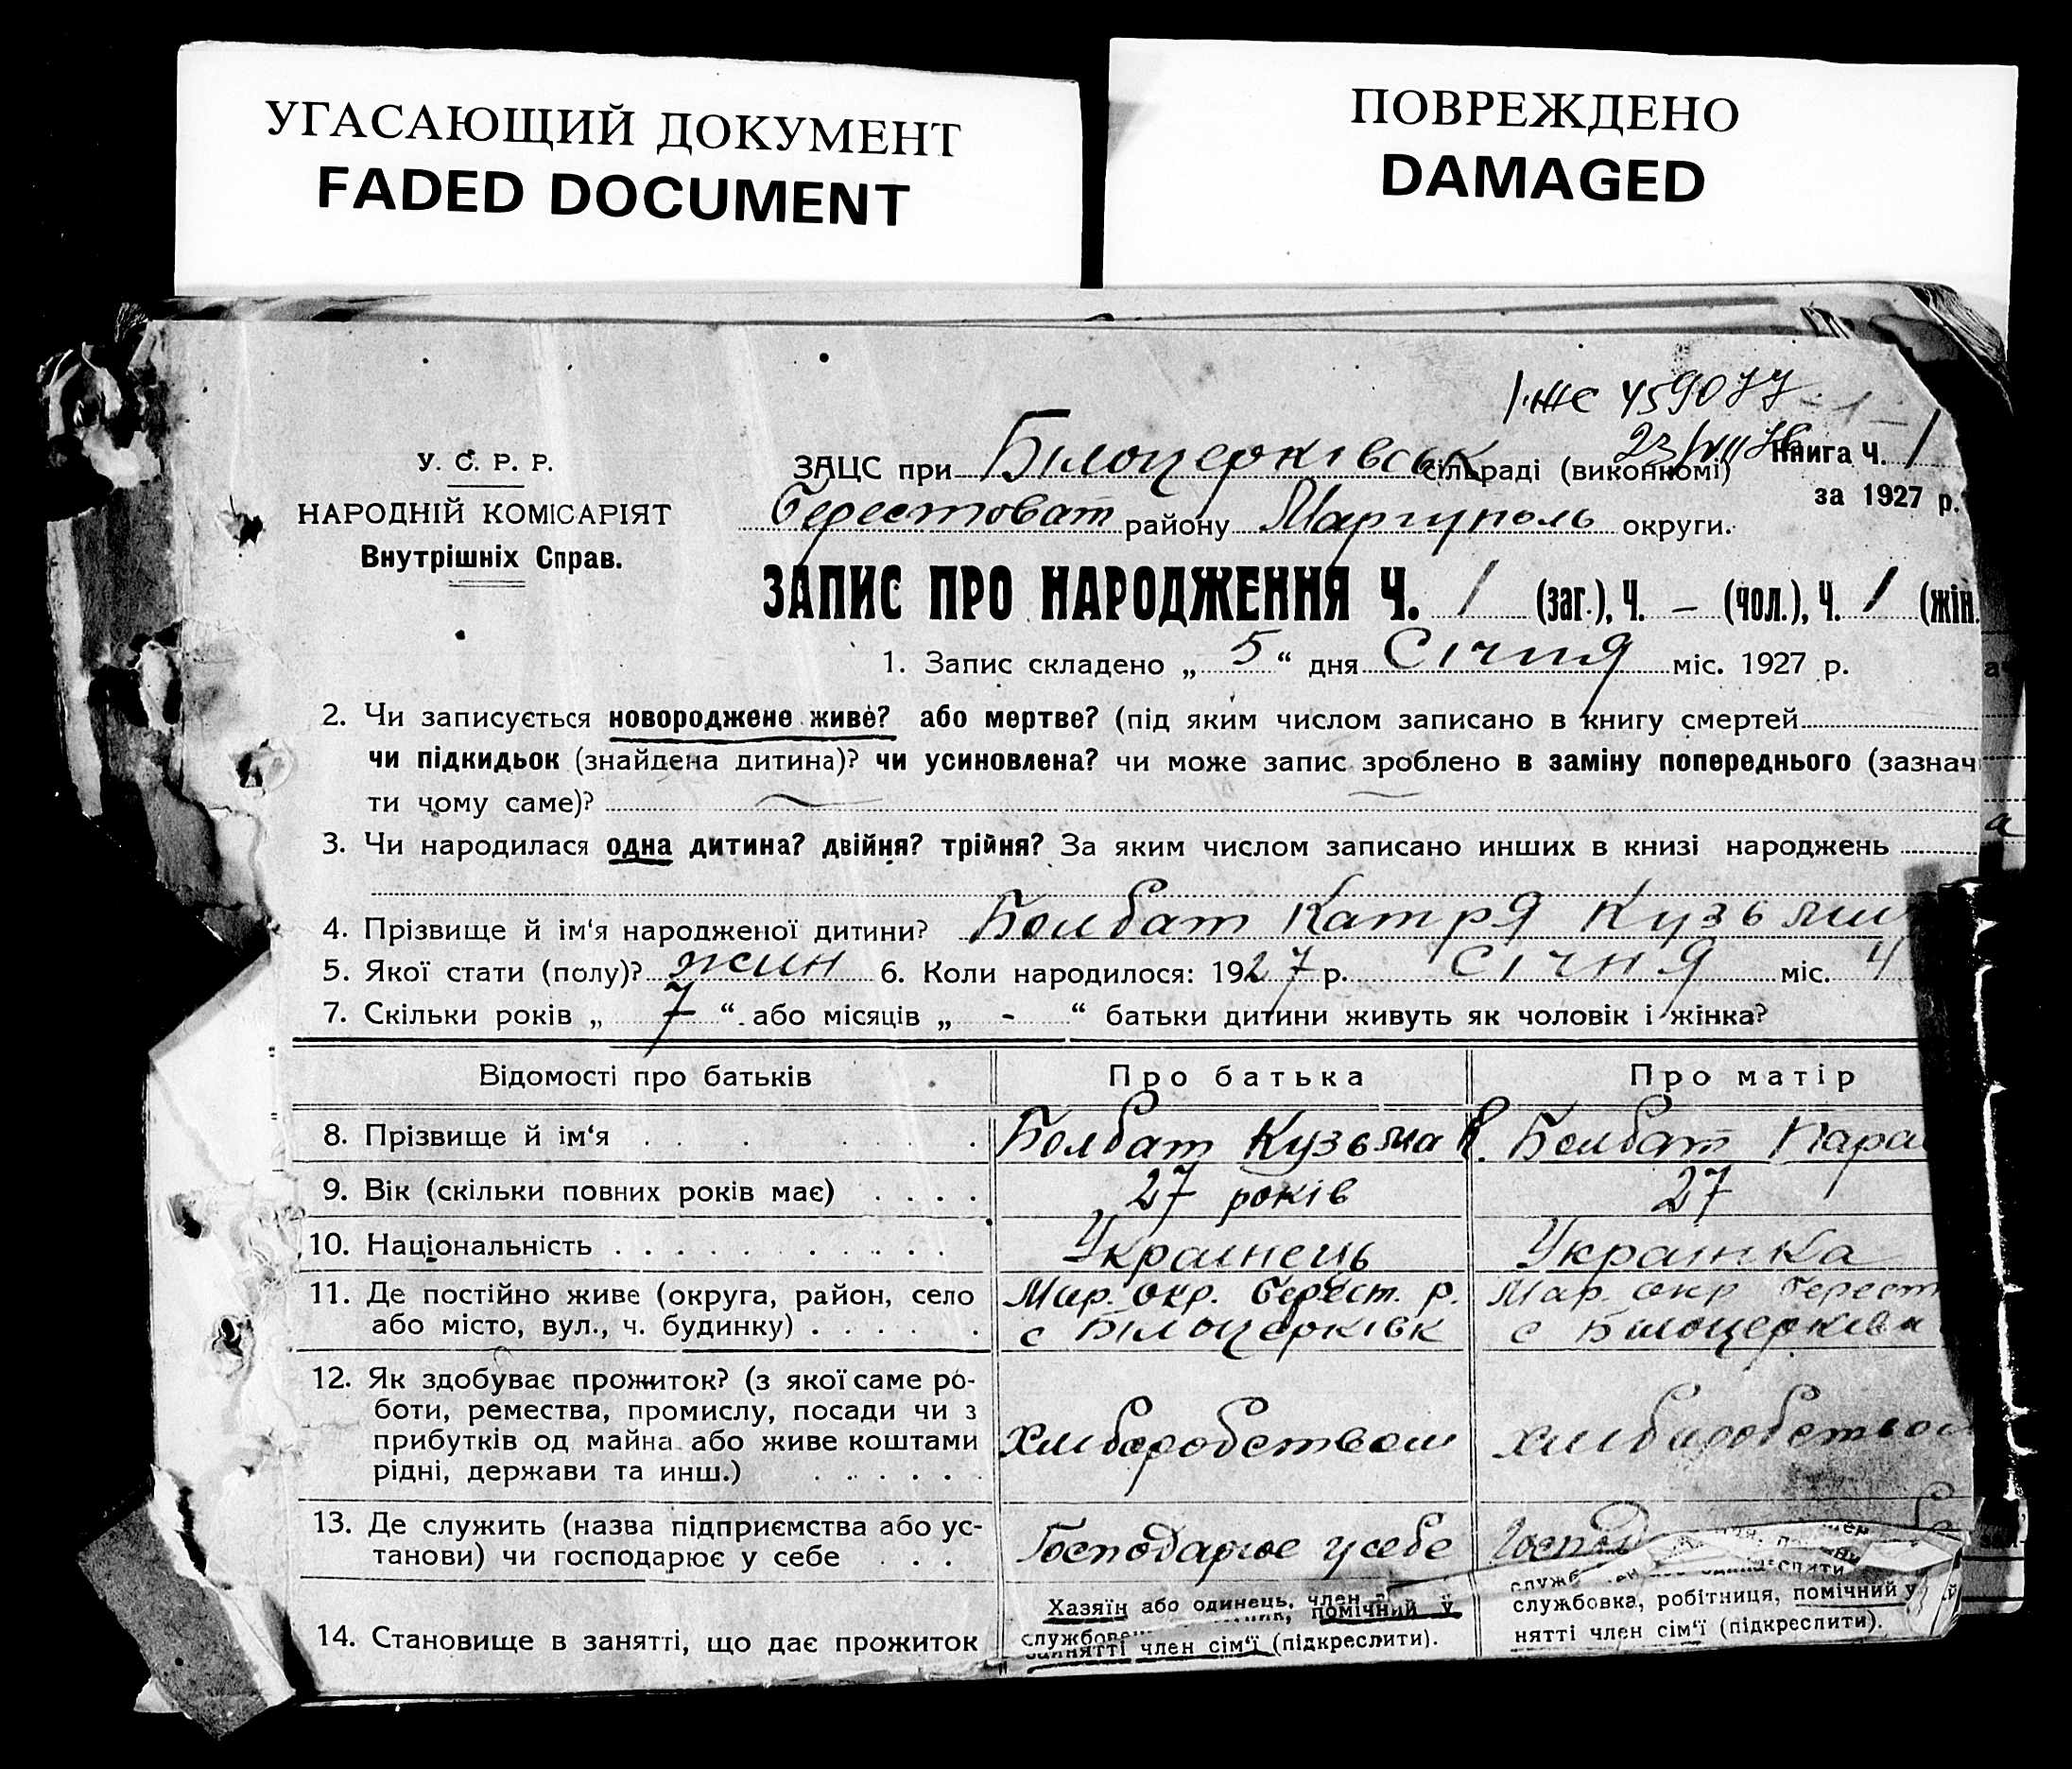 УГАСАЮЩИЙ ДОКУМЕНТ
FADED DOCUMENT
ПОВРЕЖДЕНО
DAMAGED
І-ЖС 459077
23/VIII 76
У. С. Р. Р.
НАРОДНІЙ КОМІСАРІЯТ
Внутрішніх Справ.
ЗАЦС при Білоцерківськ сільраді (виконкомі) Книга Ч. 1
Берестоват району Маріуполь округи. за 1927 р.
ЗАПИС ПРО НАРОДЖЕННЯ Ч. 1 (заг.), Ч. – (чол.), Ч. 1 (жін.
1. Запис складено „ 5 “ дня Січня міс. 1927 р.
2. Чи записується новороджене живе? або мертве? (під яким числом записано в книгу смертей
чи підкидьок (знайдена дитина)? чи усиновлена? чи може запис зроблено в заміну попереднього (зазнач
ти чому саме)?
3. Чи народилася одна дитина? двійня? трійня? За яким числом записано инших в книзі народжень
4. Прізвище й ім‘я народженої дитини? Болбат Катря Кузьми
5. Якої стати (полу)? жин 6. Коли народилося: 1927 р. Січня міс. 4
7. Скільки років „ 7 “ або місяців „ - “ батьки дитини живуть як чоловік і жінка?
Відомості про батьків Про батька Про матір
8. Прізвище й ім‘я . . . . . . . Болбат Кузьма К. Болбат Пара
9. Вік (скільки повних років має) . . . . 27 років 27
10. Національність . . . . . . . . . . . Українець Українка
11. Де постійно живе (округа, район, село Мар. окр. Берест. р. Мар. окр Берест
або місто, вул., ч. будинку) . . . . . . с Білоцерківк с Білоцерківк
12. Як здобуває прожиток? (з якої саме ро-
боти, ремества, промислу, посади чи з
прибутків од майна або живе коштами хлібаробством хлібаробство
рідні, держави та инш.) . . . . . .
13. Де служить (назва підприємства або ус-
танови) чи господарює у себе . . . Господарює у себе Господ
Хазяїн або одинець, член
помічний у
службове
занятті член сім‘ї (підкреслити).
службовка, робітниця, помічний у
нятті член сім‘ї (підкреслити).
14. Становище в занятті, що дає прожиток